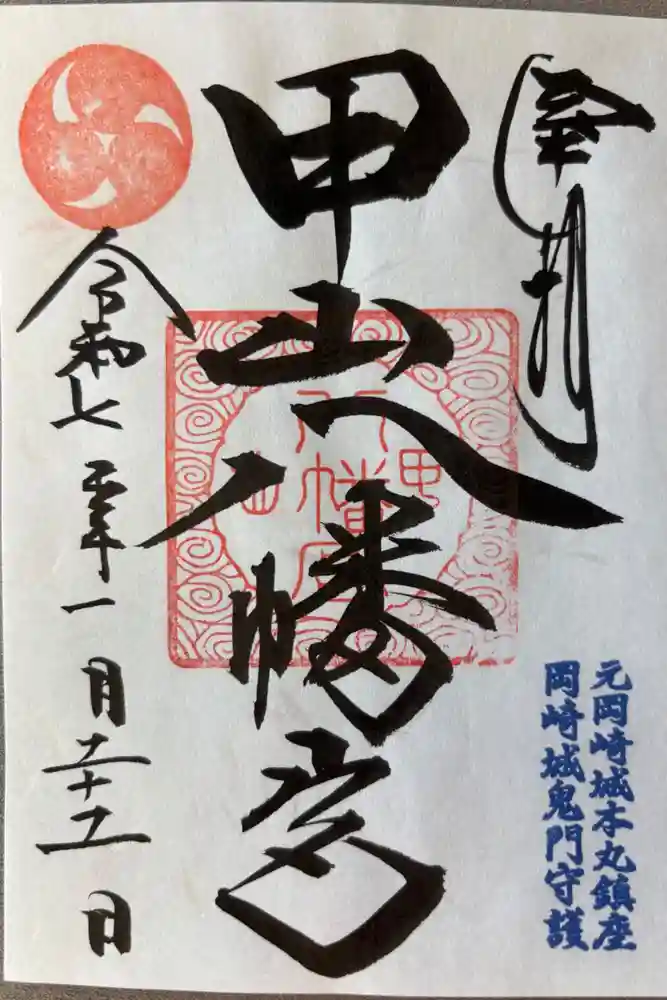 奉拝
元岡崎城本丸鎮座
岡崎城鬼門守護
甲山八幡宮
甲
八幡宮
山
令和七年一月二十五日